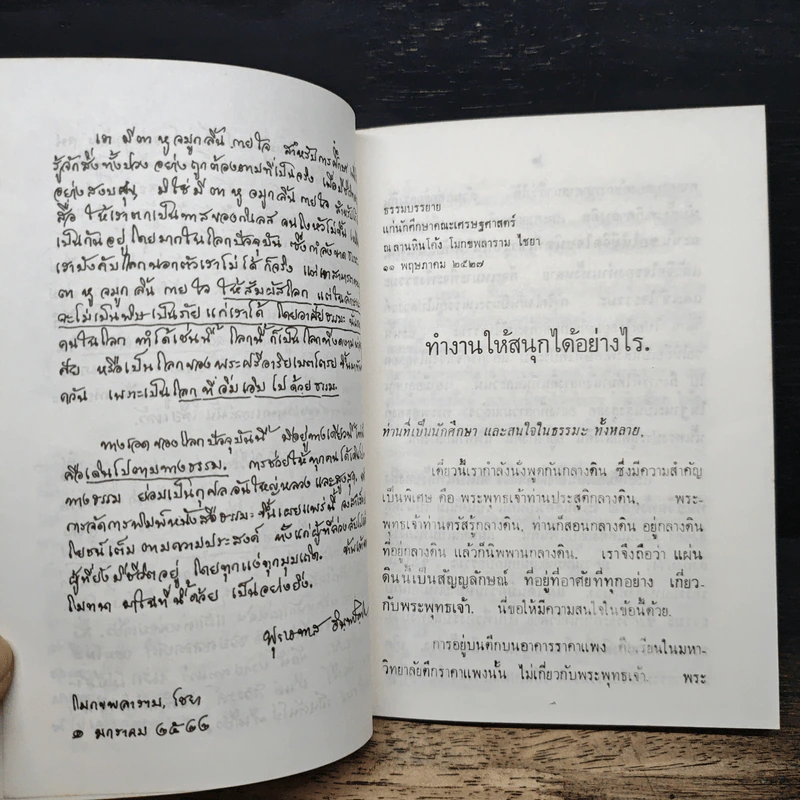 เรา มีตา หู จมูก ลิ้น กายใจ สำหรับการศึกษา
รู้จักสิ่งทั้งปวง อย่างถูกต้องตามที่เป็นจริง เพื่อมีชีวิต
อย่างสงบสุข, มิใช่มีตา หู จมูก ลิ้น กายใจ สำหรับ
สื่อ ให้เราตกเป็นทาสของกิเลส จนโงหัวไม่ขึ้น
เป็นกันอยู่ โดยมากในโลกปัจจุบัน ซึ่งกำลังขาดธรรมะ
เราบังคับโลกนอกตัวเราไม่ได้ ก็จริง แต่เราสามารถ
ตา หู จมูก ลิ้น กายใจ ให้สัมผัสโลก แต่ในลักษณะ
จะไม่เป็นพิษเป็นภัย แก่เราได้ โดยอาศัยธรรมะ นั้น
คนในโลก ทำได้เช่นนี้ โลกนี้ ก็เป็นโลกที่งดงาม
สัย หรือเป็นโลกของพระศรีอาริยเมตไตรย ขึ้นมาทัน
ควัน เพราะเป็นโลก ที่อิ่มเอิบ ไปด้วยธรรมะ.
ทางรอด ของโลกปัจจุบันนี้ มีอยู่ทางเดียวนี้
คือเดินไปตามทางธรรม. การช่วยให้ทุกคนได้เดิน
ทางธรรม ย่อมเป็นกุศลอันใหญ่หลวง และสูงสุด,
การจัดการพิมพ์หนังสือธรรมะ ขึ้นเผยแพร่นี้
โยชน์เต็มตามความประสงค์ ทั้งแก่ผู้ที่ล่วงลับไป
ผู้ที่ยังมีชีวิตอยู่ โดยทุกแง่ทุกมุมเถิด.
โมทนา มาในที่นี้ด้วย เป็นอย่างยิ่ง.
พุทธทาส อินทปัญโญ
โมกขพลาราม, ไชยา
๑ มกราคม ๒๕๒๒
ธรรมบรรยาย
แก่นักศึกษาคณะเศรษฐศาสตร์
ณ ลานหินโค้ง โมกขพลาราม ไชยา
๑๑ พฤษภาคม ๒๕๒๗
ทำงานให้สนุกได้อย่างไร.
ท่านที่เป็นนักศึกษา และสนใจในธรรมะ ทั้งหลาย.
เดี๋ยวนี้เรากำลังนั่งพูดกันกลางดิน ซึ่งมีความสำคัญ
เป็นพิเศษ คือ พระพุทธเจ้าท่านประสูติกลางดิน, พระ-
พุทธเจ้าท่านตรัสรู้กลางดิน, ท่านก็สอนกลางดิน อยู่กลางดิน
ที่อยู่กลางดิน แล้วก็นิพพานกลางดิน. เราจึงถือว่า แผ่น
ดินนี้เป็นสัญญลักษณ์ ที่อยู่ที่อาศัยที่ทุกอย่าง เกี่ยว-
กับพระพุทธเจ้า. นี่ขอให้มีความสนใจในข้อนี้ด้วย.
การอยู่บนตึกบนอาคารราคาแพง คือเรียนในมหา-
วิทยาลัยตึกราคาแพงนั้น ไม่เกี่ยวกับพระพุทธเจ้า. พระ